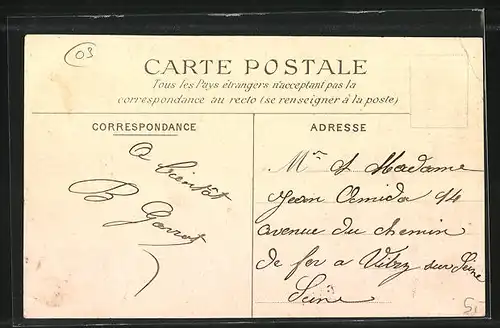 03
CARTE POSTALE
Tous les Pays étrangers n'acceptent pas la
correspondance au recto (se renseigner à la poste)
CORRESPONDANCE
ADRESSE
A bientôt
B Garrot
Mr et Madame
Jean 94
avenue du chemin
de fer a Vitry sur Seine
Seine